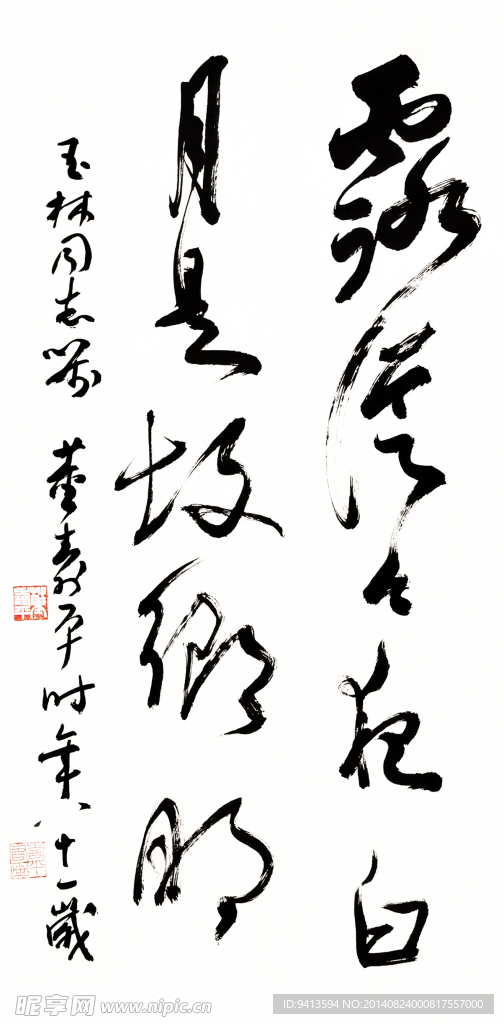 露從今夜白
月是故鄉明
玉林同志嘱 董寿平时年八十一歲
昵享网 www.nipic.cn
ID:9413594 NO:20140824000817557000